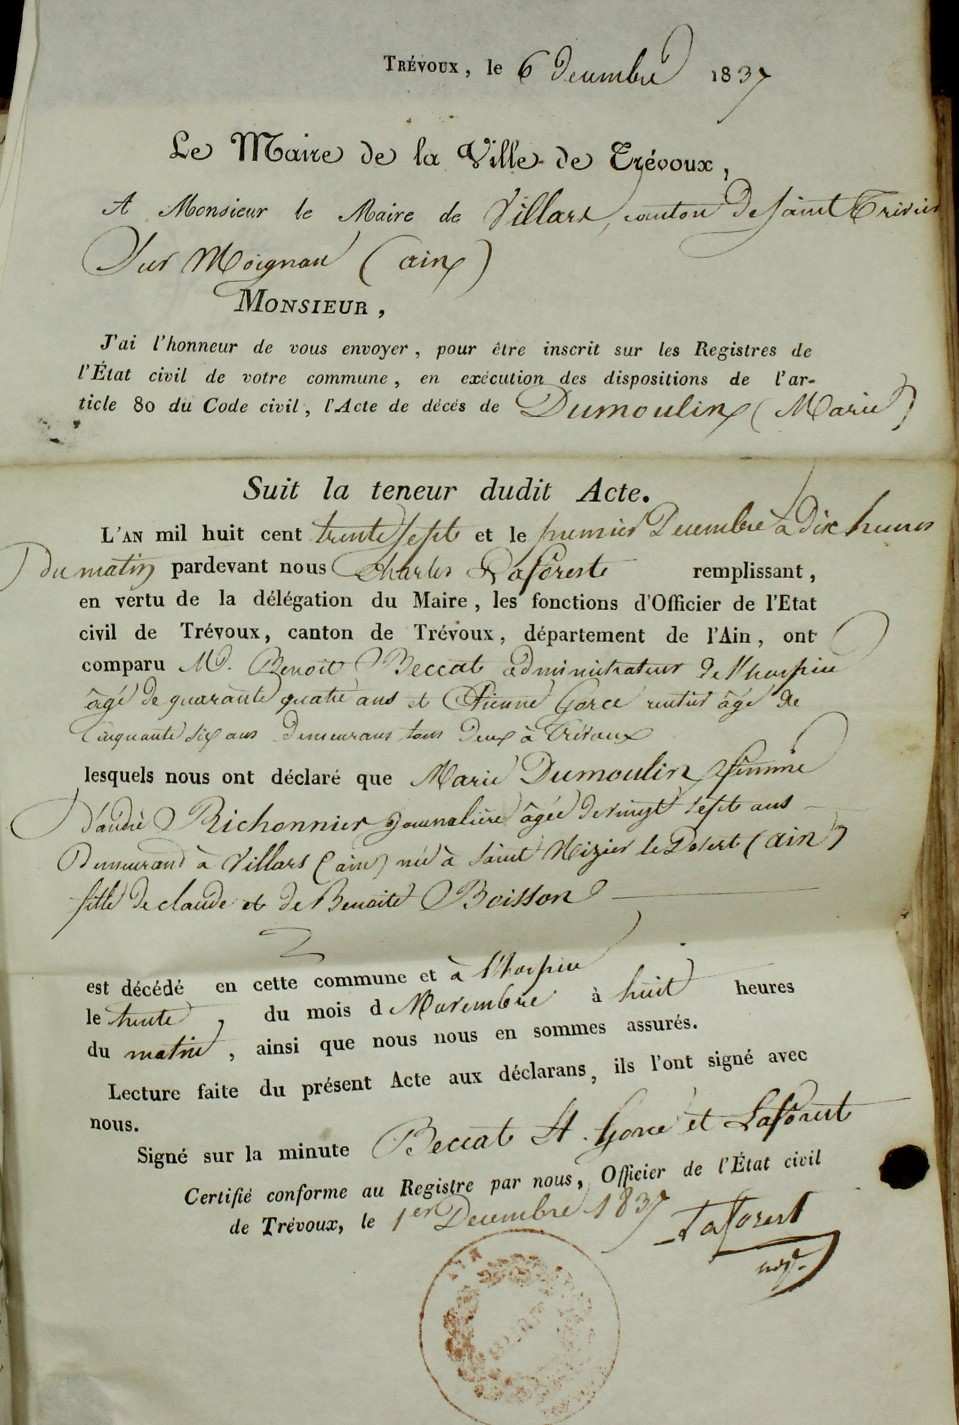 TRÉVOUX, le 6 Decembre 1837
Le Maire de la Ville de Trévoux,
A Monsieur le Maire de Villars, canton de saint Trivier
Sur Moignan (ain)
MONSIEUR,
J'ai l'honneur de vous envoyer, pour être inscrit sur les Registres de
l'État civil de votre commune, en exécution des dispositions de l'ar-
ticle 80 du Code civil, l'Acte de décès de Dumoulin (Marie)
Suit la teneur dudit Acte.
L'AN mil huit cent trente sept et le premier Decembre à Dix heures
Du matin pardevant nous Charles Laforest remplissant,
en vertu de la délégation du Maire, les fonctions d'Officier de l'Etat
civil de Trévoux, canton de Trévoux, département de l'Ain, ont
comparu M. Benoit Beccat administrateur de l'hospice
âgé de quarante quatre ans et Etienne Gorce rentier âgé de
Cinquante six ans Demeurans tous Deux à Trévoux
lesquels nous ont déclaré que Marie Dumoulin femme
D'andré Richonnier Journalière âgée de vingt sept ans
Demeurand à Villars (ain) née à Saint Nizier le Desert (ain)
fille de claude et de Benoite Boisson
est décédé en cette commune et à l'hospice
le trente, du mois d Novembre à huit heures
du matin, ainsi que nous nous en sommes assurés.
Lecture faite du présent Acte aux déclarans, ils l'ont signé avec
nous.
Signé sur la minute Beccat Gorce et Laforest
Certifié conforme au Registre par nous, Officier de l'État civil
de Trévoux, le 1er Decembre 1837 Laforest
adjt
AIN